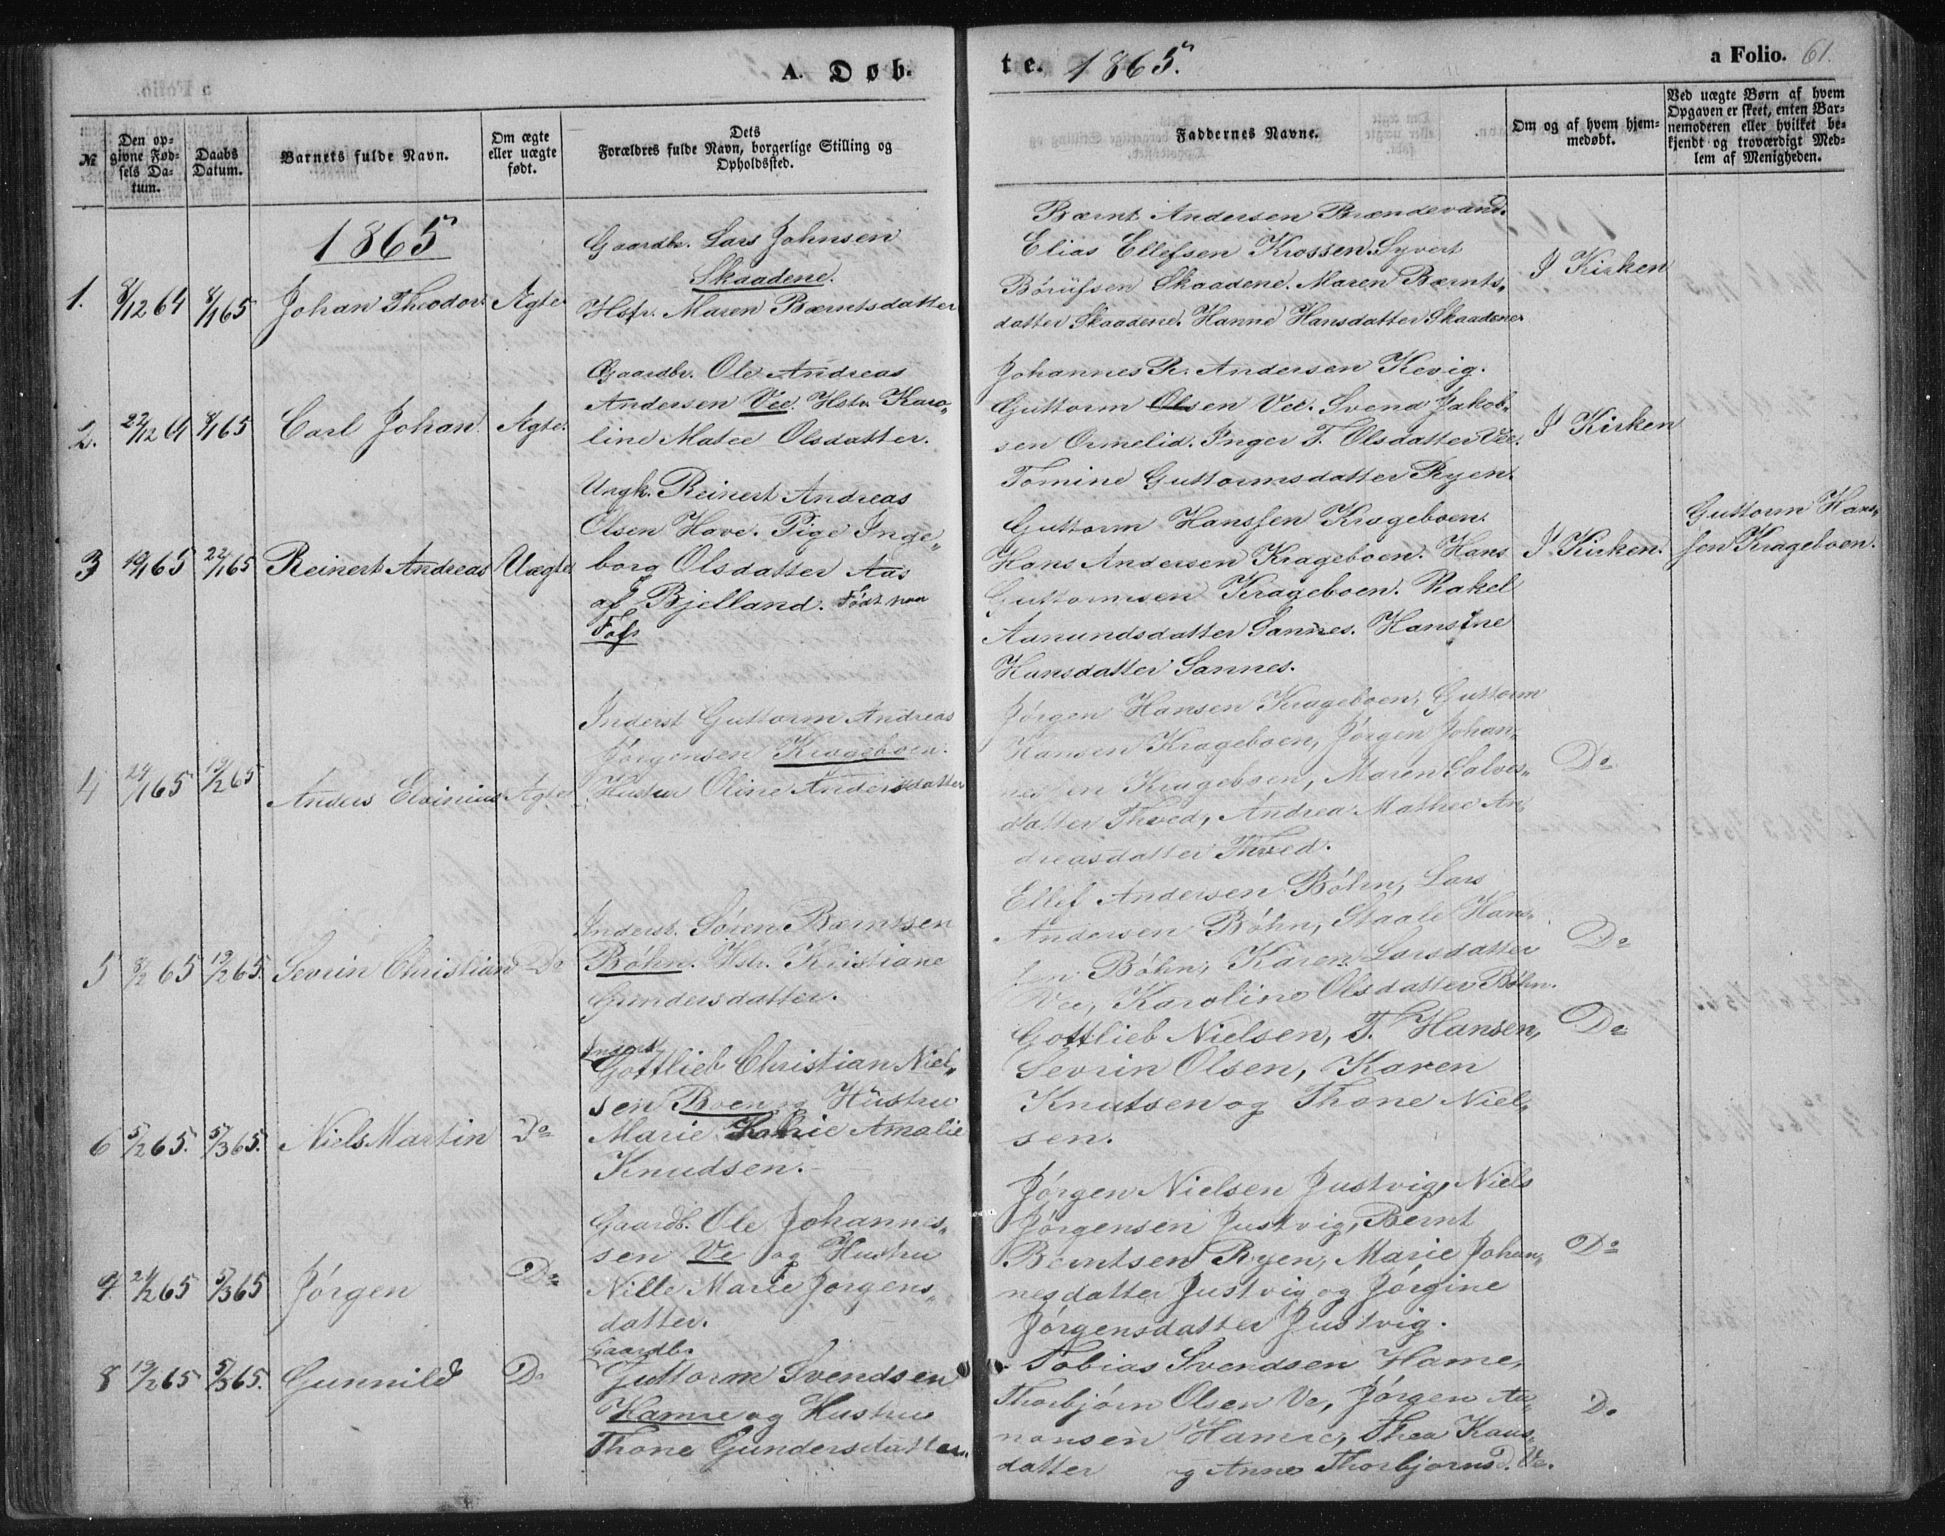 A. Døb.
te. 1865.
a Folio. 61.
№
Den op-
givne Fød-
sels Da-
tum.
Daabs
Datum.
Barnets fulde Navn.
Om ægte
eller uægte
født.
Dets
Forældres fulde Navn, borgerlige Stilling og
Opholdssted.
Faddernes Navne.
Om og af hvem hjem-
medøbt.
Ved uægte Børn af hvem
Opgaven er skeet, enten Bar-
nemoderen eller hvilket be-
kjendt og troværdigt Med-
lem af Menigheden.
1865
1. 8/12 64 8/1 65 Johan Theodor. Ægte
Gaardbr. Lars Johnsen
Skaadene.
Hstr. Maren Bærntsdatter
Bærnt Andersen Brændevand.
Elias Ellefsen Krossen. Syvert
Börüfsen Skaadene. Maren Bærnts-
datter Skaadene. Hanne Hansdatter Skaadene.
I Kirken
2. 22/12 64 8/1 65 Carl Johan. Ægte.
Gaardbr. Ole Andreas
Andersen Vee. Hstr. Karo-
line Matee Olsdatter.
Johannes Andersen Kevig.
Guttorm Olsen Vee. Svend Jakob-
sen Ormelid. Inger T. Olsdatter Vee.
Tomine Guttormsdatter Ryen.
I Kirken
3 10/1 65 22/1 65 Reinert Andreas Uægte
Ungk. Reinert Andreas
Olsen Have. Pige Inge-
borg Olsdatter Aas
af Bjelland. Født paa
Guttorm Hanssen Krageboen.
Hans Andersen Krageboen. Hans
Guttormsen Krageboen. Rakel
Aanundsdatter Sannes. Hansine
Hansdatter Sannes.
I Kirken.
Guttorm Hans-
sen Krageboen.
4 24/1 65 19/2 65 Anders Elvinius Ægte
Inderst Guttorm Andreas
Jørgensen Krageboen.
Hustru Oline Andersdatter
Jørgen Hansen Krageboen, Guttorm
Hansen Krageboen, Jørgen Johan-
nessen Krageboen, Maren Salves-
datter Thved, Andrea Mathee An-
dreasdatter Thved.
Do
5 8/2 65 19/2 65. Sevrin Christian Do
Inderst. Sören Berntsen
Bøhn. Hstr. Kristiane
Gundersdatter.
Ellef Andersen Bøhn, Lars
Andersen Bøhn, Staale Han-
sen Bøhn, Karen Larsdatter
Vee, Karoline Olsdatter Bøhn.
Do
6 5/2 65. 5/3 65. Niels Martin Do
Inderst
Gottlieb Christian Niel-
sen Boen og Hustru
Marie Amalie
Knudsen.
Gottlieb Nielsen, T. Hansen,
Sevrin Olsen, Karen
Knutsen og Thone Niel-
sen.
Do
7. 24/2 65 5/3 65 Jørgen Do
Gaardb. Ole Johannes-
sen Ve og Hustru
Nille Marie Jørgens-
datter.
Jørgen Nielsen Justvig, Niels
Jørgensen Justvig, Bernt
Berntsen Ryen, Marie Johan-
nesdatter Justvig og Jørgine
Jørgensdatter Justvig.
Do
8 19/2 65 5/3 65. Gunnild Do
Gaardb.
Guttorm Svendsen
Hamre og Hustru
Thone Gundersdatter.
Tobias Svendsen Hamre,
Thorbjørn Olsen Ve, Jørgen Aa-
nonsen Hamre, Thea
datter og Anne Thorbjørnsd. Ve.
Do